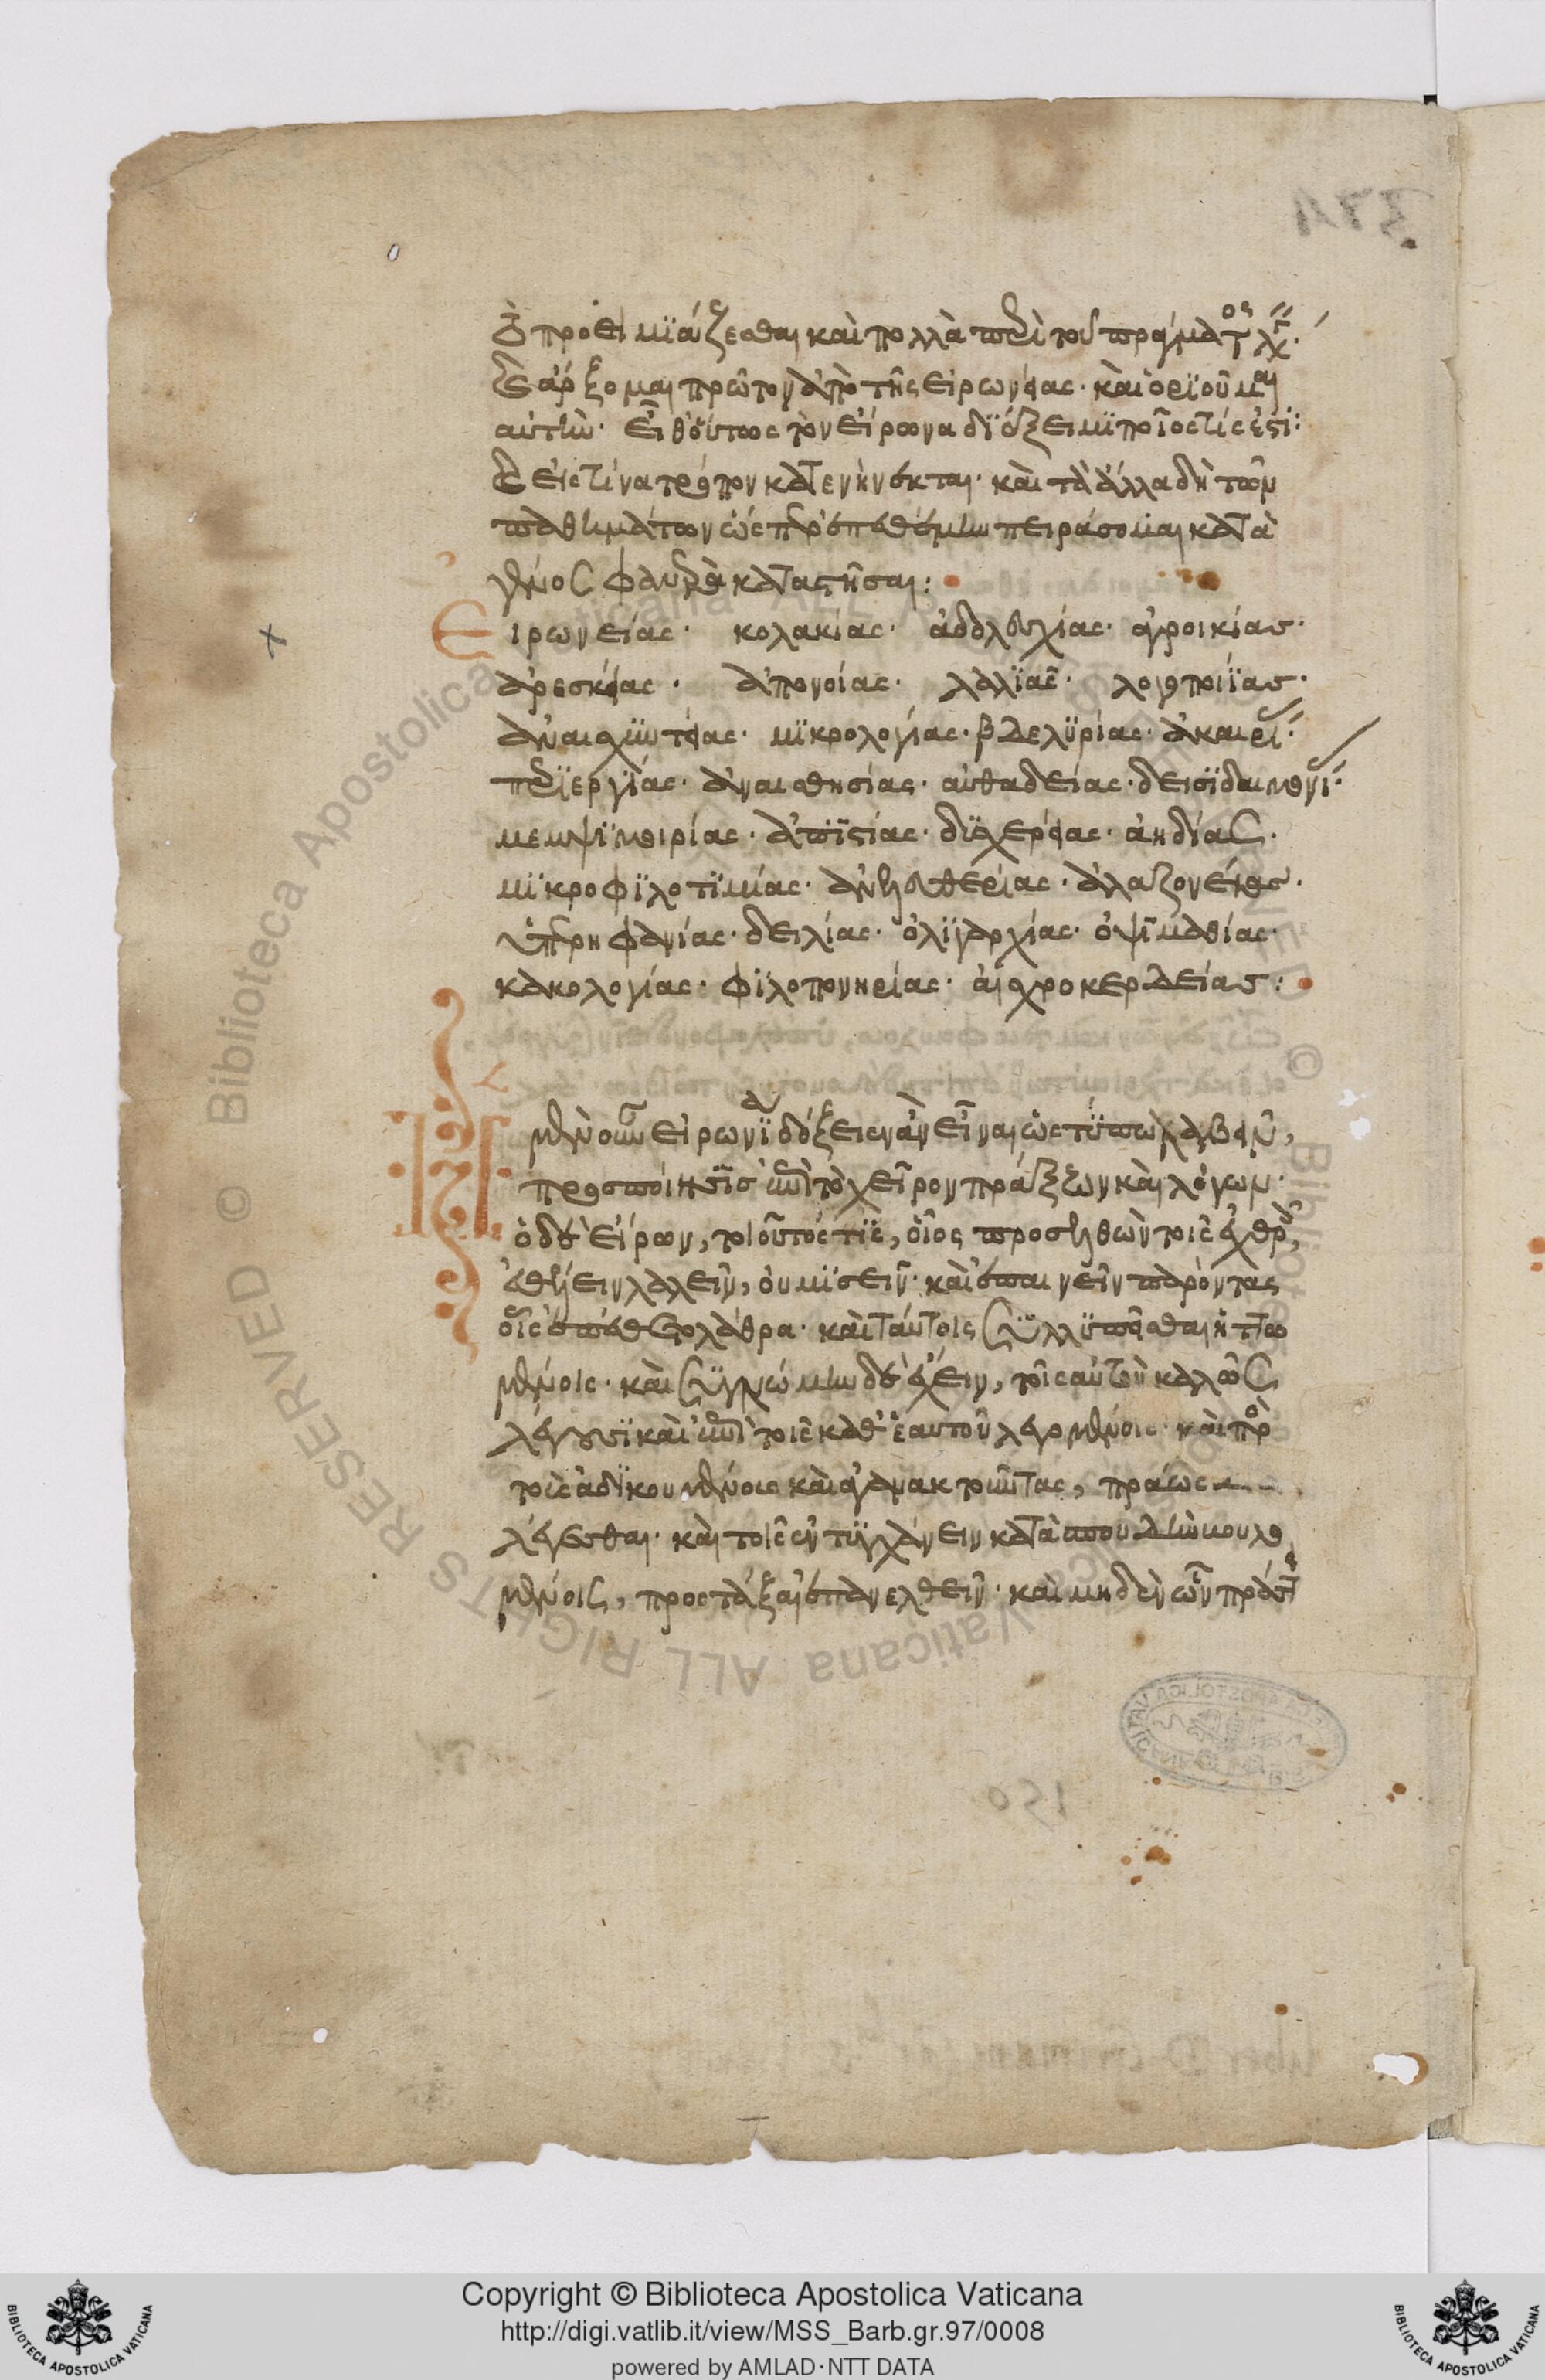 τὸ προοιμιάζεσθαι καὶ πολλὰ περὶ τοῦ πράγματος λέγ.
καὶ ἄρξομαι πρῶτον ἀπὸ τῆς εἰρωνείας· καὶ ὁριοῦμαι
αὐτὴν· εἶθ' οὕτως τὸν εἴρωνα διέξειμι ποῖός τίς ἐστι:
καὶ εἰς τίνα τρόπον κατενήνεκται· καὶ τὰ ἄλλα δὴ τῶν
παθημάτων ὡς προεθέμην πειράσομαι κατὰ
γένος φανερὰ καταστῆσαι:
Εἰρωνείας· κολακίας· ἀδολεσχίας· ἀγροικίας·
ἀρεσκείας· ἀπονοίας· λαλιᾶς· λογοποιίας·
ἀναισχυντείας· μικρολογίας· βδελυρίας· ἀκαιρί·
περιεργίας· ἀναισθησίας· αὐθαδείας· δεισιδαιμονί·
μεμψιμοιρίας· ἀπιστίας· δυσχερείας· ἀηδίας·
μικροφιλοτιμίας· ἀνελευθερίας· ἀλαζονείας·
ὑπερηφανίας· δειλίας· ὀλιγαρχίας· ὀψιμαθίας·
κακολογίας· φιλοπονηρίας· αἰσχροκερδείας:
Ἡ μὲν οὖν εἰρωνεία δόξειεν ἂν εἶναι ὡς τύπῳ λαβεῖν,
προσποίησις ἐπὶ τὸ χεῖρον πράξεων καὶ λόγων·
ὁ δὲ εἴρων, τοιοῦτός τις, οἷος προσελθὼν τοῖς ἐχθροῖς,
ἐθέλειν λαλεῖν, οὐ μισεῖν· καὶ ἐπαινεῖν παρόντας
οἷς ἐπέθετο λάθρα· καὶ τούτοις συλλυπεῖσθαι ἡττω
μένοις· καὶ συγγνώμην δὲ ἔχειν, τοῖς αὐτὸν κακῶς
λέγουσι καὶ ἐπὶ τοῖς καθ' ἑαυτοῦ λεγομένοις· καὶ πρὸ
τοὺς ἀδικουμένους καὶ ἀγανακτοῦντας, πράως
λέγεσθαι· καὶ τοῖς ἐντυγχάνειν κατὰ σπουδὴν βουλο
μένοις, προστάξαι ἐπανελθεῖν· καὶ μηδὲν ὧν πράττει
150
Copyright © Biblioteca Apostolica Vaticana
http://digi.vatlib.it/view/MSS_Barb.gr.97/0008
powered by AMLAD·NTT DATA
BIBLIOTECA APOSTOLICA VATICANA
BIBLIOTECA APOSTOLICA VATICANA